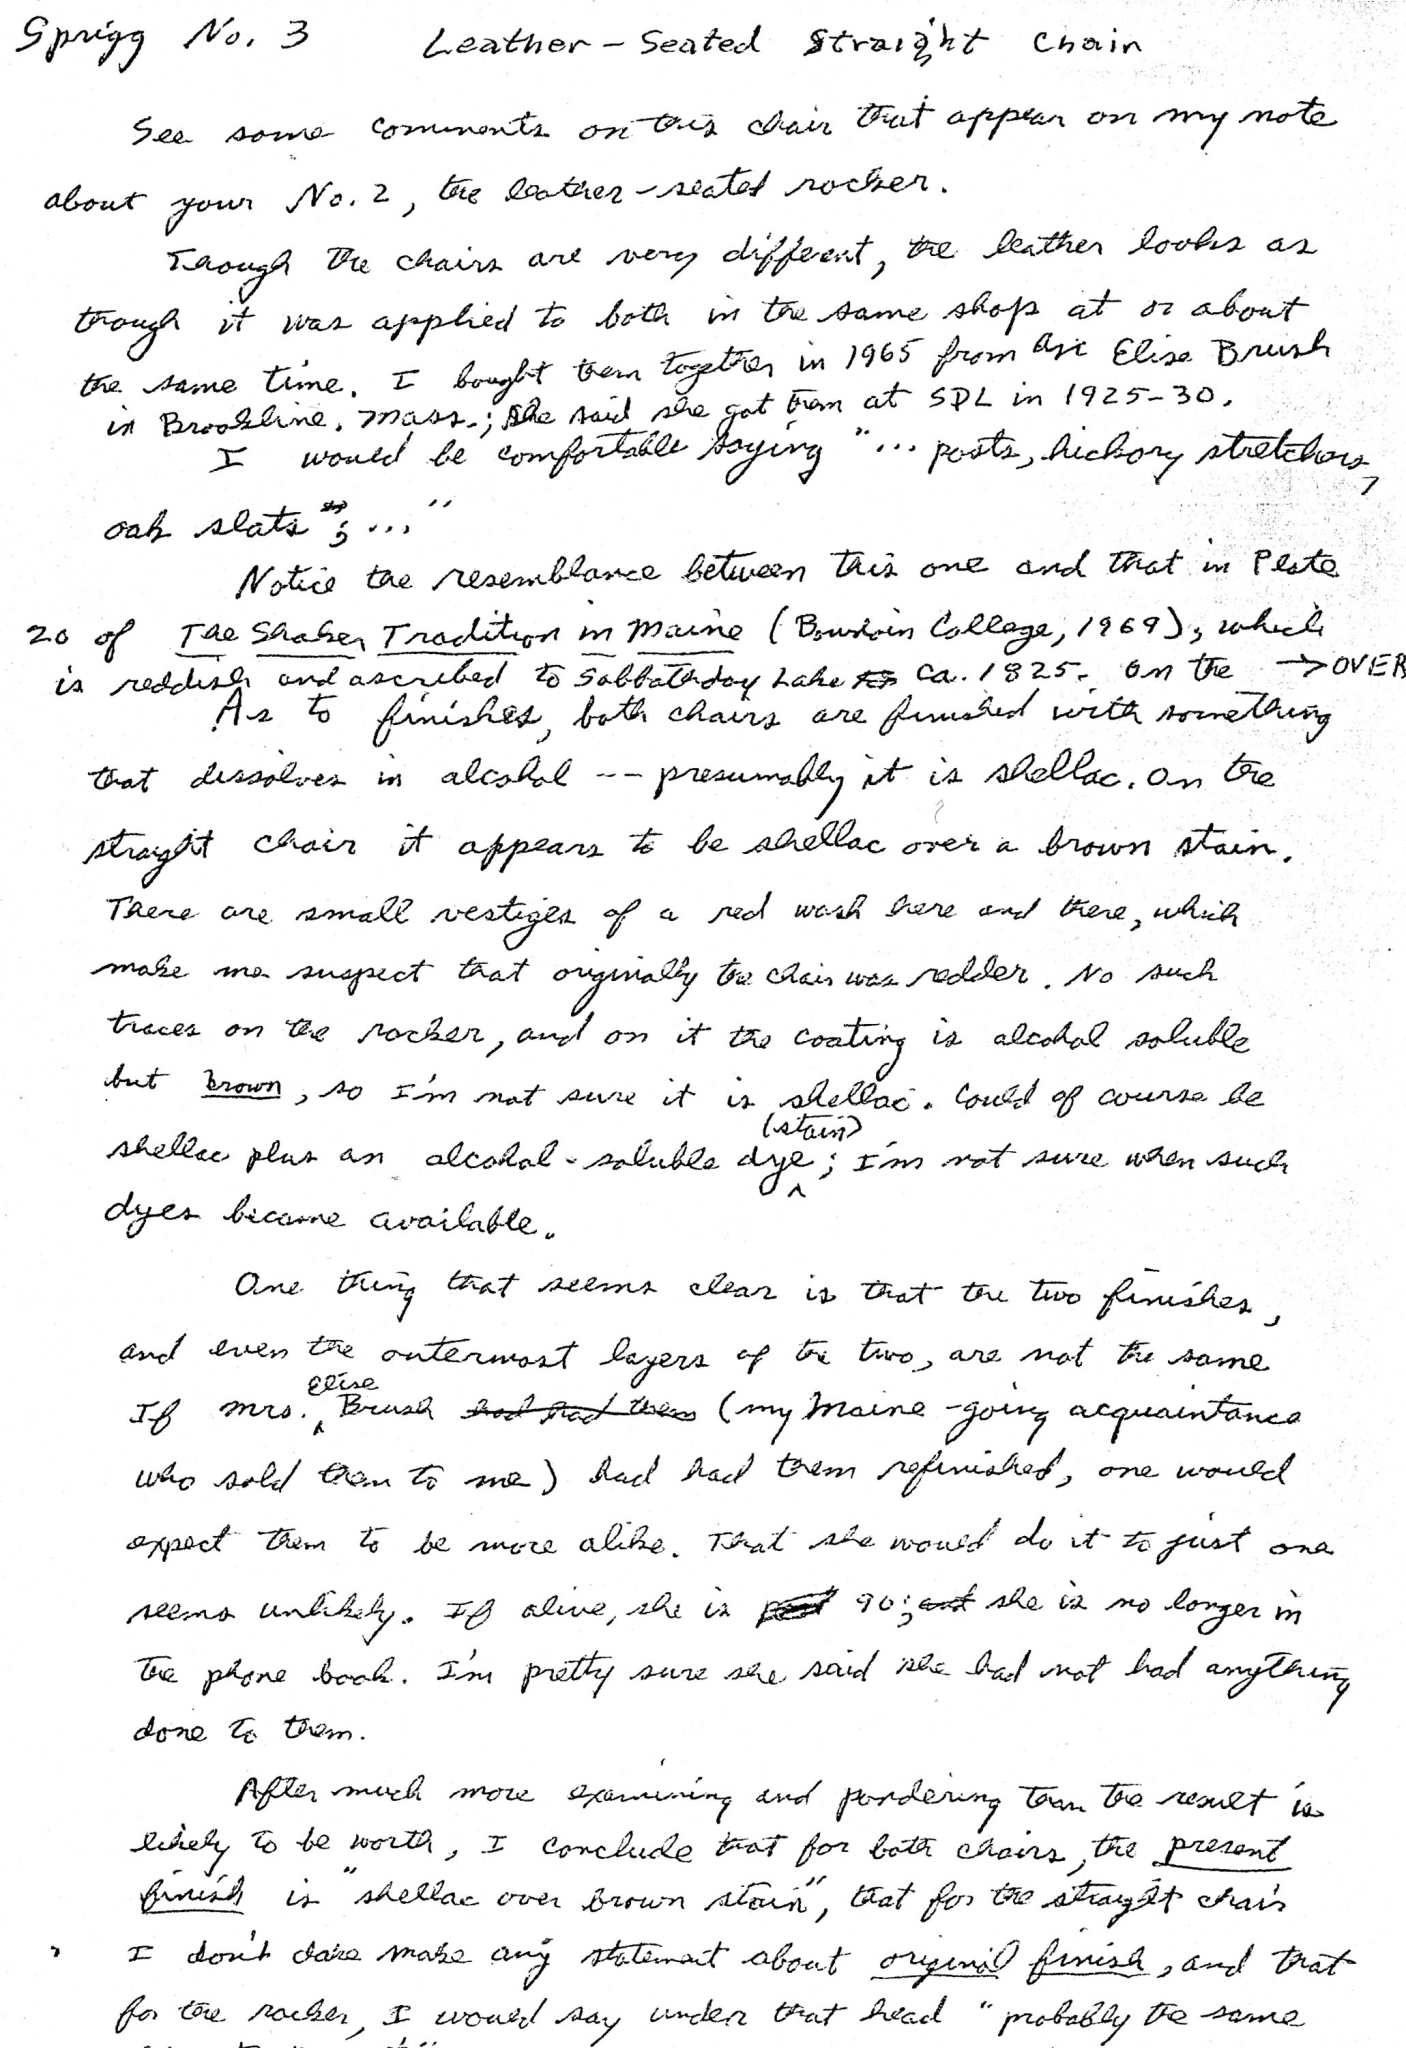 Sprigg No. 3 Leather-Seated Straight Chair
See some comments on this chair that appear on my note
about your No. 2, the leather-seated rocker.
Though the chairs are very different, the leather looks as
though it was applied to both in the same shop at or about
the same time. I bought them together in 1965 from Elise Brush
in Brookline, Mass.; she said she got them at SDL in 1925-30.
I would be comfortable saying "... posts, hickory stretchers,
oak slats; ..."
Notice the resemblance between this one and that in Plate
20 of The Shaker Tradition in Maine (Bowdoin College, 1969), which
is reddish and ascribed to Sabbathday Lake ca. 1825. On the → OVER
As to finishes, both chairs are finished with something
that dissolves in alcohol --- presumably it is shellac. On the
straight chair it appears to be shellac over a brown stain.
There are small vestiges of a red wash here and there, which
make me suspect that originally the chair was redder. No such
traces on the rocker, and on it the coating is alcohol soluble
but brown, so I'm not sure it is shellac. Could of course be
(stain)
shellac plus an alcohol-soluble dye; I'm not sure when such
dyes became available.
One thing that seems clear is that the two finishes,
and even the outermost layers of the two, are not the same
If Mrs. Elise Brush had had them (my Maine-going acquaintance
who sold them to me) had had them refinished, one would
expect them to be more alike. That she would do it to just one
seems unlikely. If alive, she is 90; and she is no longer in
the phone book. I'm pretty sure she said she had not had anything
done to them.
After much more examining and pondering than the result is
likely to be worth, I conclude that for both chairs, the present
finish is "shellac over brown stain", that for the straight chair
I don't dare make any statement about original finish, and that
for the rocker, I would say under that head "probably the same